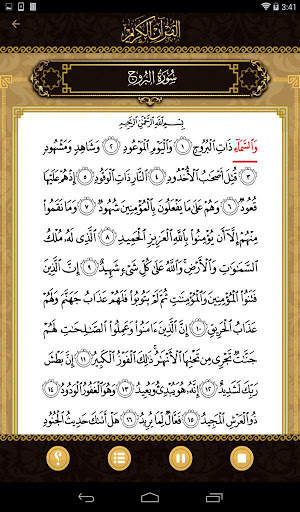 3:41
القرآن الكريم
سُورَةُ البُرُوجِ
بِسْمِ اللَّهِ الرَّحْمَٰنِ الرَّحِيمِ
وَالسَّمَاءِ ذَاتِ الْبُرُوجِ ١ وَالْيَوْمِ الْمَوْعُودِ ٢ وَشَاهِدٍ وَمَشْهُودٍ
٣ قُتِلَ أَصْحَابُ الْأُخْدُودِ ٤ النَّارِ ذَاتِ الْوَقُودِ ٥ إِذْ هُمْ عَلَيْهَا
قُعُودٌ ٦ وَهُمْ عَلَىٰ مَا يَفْعَلُونَ بِالْمُؤْمِنِينَ شُهُودٌ ٧ وَمَا نَقَمُوا
مِنْهُمْ إِلَّا أَن يُؤْمِنُوا بِاللَّهِ الْعَزِيزِ الْحَمِيدِ ٨ الَّذِي لَهُ مُلْكُ
السَّمَاوَاتِ وَالْأَرْضِ وَاللَّهُ عَلَىٰ كُلِّ شَيْءٍ شَهِيدٌ ٩ إِنَّ الَّذِينَ
فَتَنُوا الْمُؤْمِنِينَ وَالْمُؤْمِنَاتِ ثُمَّ لَمْ يَتُوبُوا فَلَهُمْ عَذَابُ جَهَنَّمَ وَلَهُمْ
عَذَابُ الْحَرِيقِ ١٠ إِنَّ الَّذِينَ آمَنُوا وَعَمِلُوا الصَّالِحَاتِ لَهُمْ
جَنَّاتٌ تَجْرِي مِن تَحْتِهَا الْأَنْهَارُ ذَٰلِكَ الْفَوْزُ الْكَبِيرُ ١١ إِنَّ بَطْشَ
رَبِّكَ لَشَدِيدٌ ١٢ إِنَّهُ هُوَ يُبْدِئُ وَيُعِيدُ ١٣ وَهُوَ الْغَفُورُ الْوَدُودُ ١٤
ذُو الْعَرْشِ الْمَجِيدُ ١٥ فَعَّالٌ لِّمَا يُرِيدُ ١٦ هَلْ أَتَاكَ حَدِيثُ الْجُنُودِ
؟